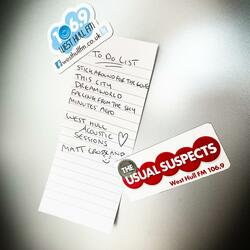 106.9
WEST HULL FM
westhullfm.co.uk
TO DO LIST
STICK AROUND FOR THE
THIS CITY
DREAMWORLD
FALLING FROM THE SKY
MINUTES AGO
WEST HULL
ACOUSTIC
SESSIONS
MATT
THE
USUAL SUSPECTS
West Hull FM 106.9